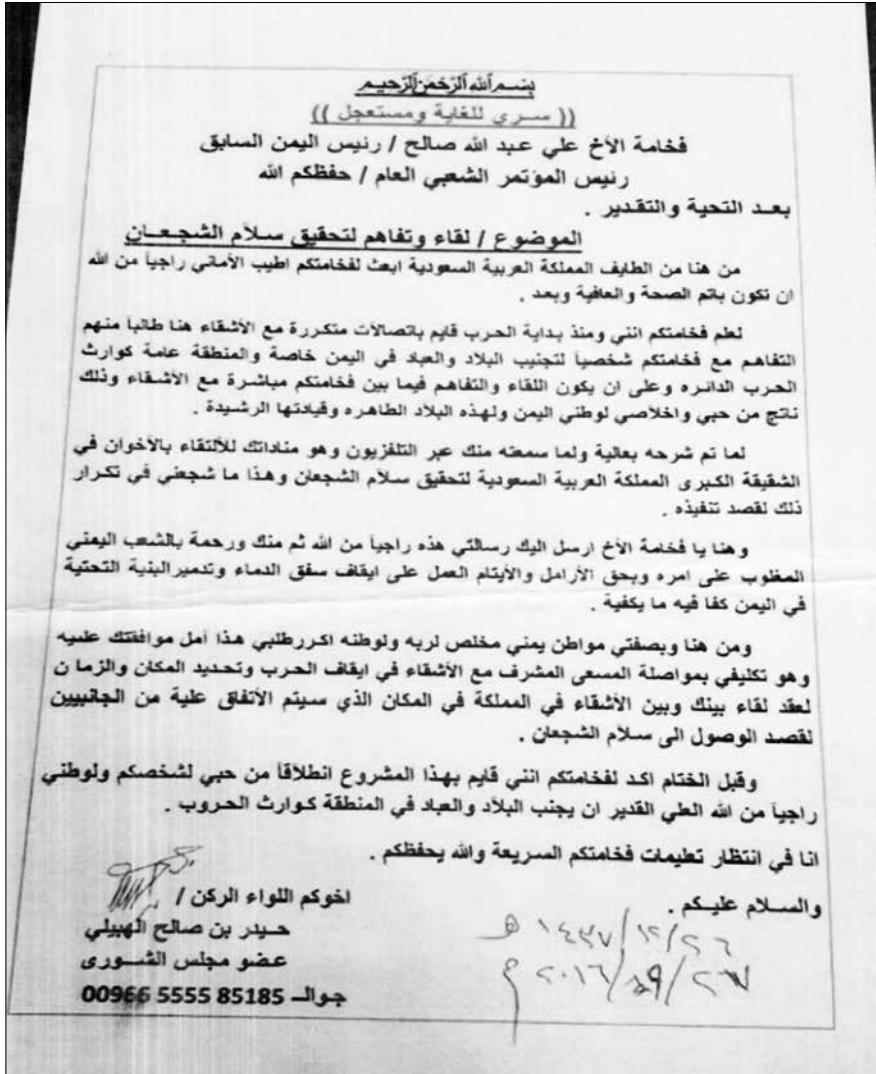 بسم الله الرحمن الرحيم
(( سري للغاية ومستعجل ))
فخامة الأخ علي عبد الله صالح / رئيس اليمن السابق
رئيس المؤتمر الشعبي العام / حفظكم الله
بعد التحية والتقدير .
الموضوع / لقاء وتفاهم لتحقيق سلام الشجعان
من هنا من الطايف المملكة العربية السعودية ابعث لفخامتكم اطيب الأماني راجياً من الله
ان تكون باتم الصحة والعافية وبعد .
لعلم فخامتكم انني ومنذ بداية الحرب قايم باتصالات متكررة مع الأشقاء هنا طالباً منهم
التفاهم مع فخامتكم شخصياً لتجنيب البلاد والعباد في اليمن خاصة والمنطقة عامة كوارث
الحرب الدائره وعلى ان يكون اللقاء والتفاهم فيما بين فخامتكم مباشرة مع الأشقاء وذلك
ناتج من حبي واخلاصي لوطني اليمن ولهذه البلاد الطاهره وقيادتها الرشيدة .
لما تم شرحه بعالية ولما سمعته منك عبر التلفزيون وهو مناداتك للألتقاء بالأخوان في
الشقيقة الكبرى المملكة العربية السعودية لتحقيق سلام الشجعان وهذا ما شجعني في تكرار
ذلك لقصد تنفيذه .
وهنا يا فخامة الأخ ارسل اليك رسالتي هذه راجياً من الله ثم منك ورحمة بالشعب اليمني
المغلوب على امره وبحق الأرامل والأيتام العمل على ايقاف سفق الدماء وتدميرالبنية التحتية
في اليمن كفا فيه ما يكفية .
ومن هنا وبصفتي مواطن يمني مخلص لربه ولوطنه اكررطلبي هذا آمل موافقتك عليه
وهو تكليفي بمواصلة المسعى المشرف مع الأشقاء في ايقاف الحرب وتحديد المكان والزما ن
لعقد لقاء بينك وبين الأشقاء في المملكة في المكان الذي سيتم الأتفاق علية من الجانبيين
لقصد الوصول الى سلام الشجعان .
وقبل الختام اكد لفخامتكم انني قايم بهذا المشروع انطلاقاً من حبي لشخصكم ولوطني
راجياً من الله العلي القدير ان يجنب البلاد والعباد في المنطقة كوارث الحروب .
انا في انتظار تعليمات فخامتكم السريعة والله يحفظكم .
والسلام عليكم .
١٤٣٧/١٢/٢٦ هـ
٢٠١٦/٠٩/٢٧ م
اخوكم اللواء الركن /
حيدر بن صالح الهبيلي
عضو مجلس الشورى
جوال 00966 5555 85185